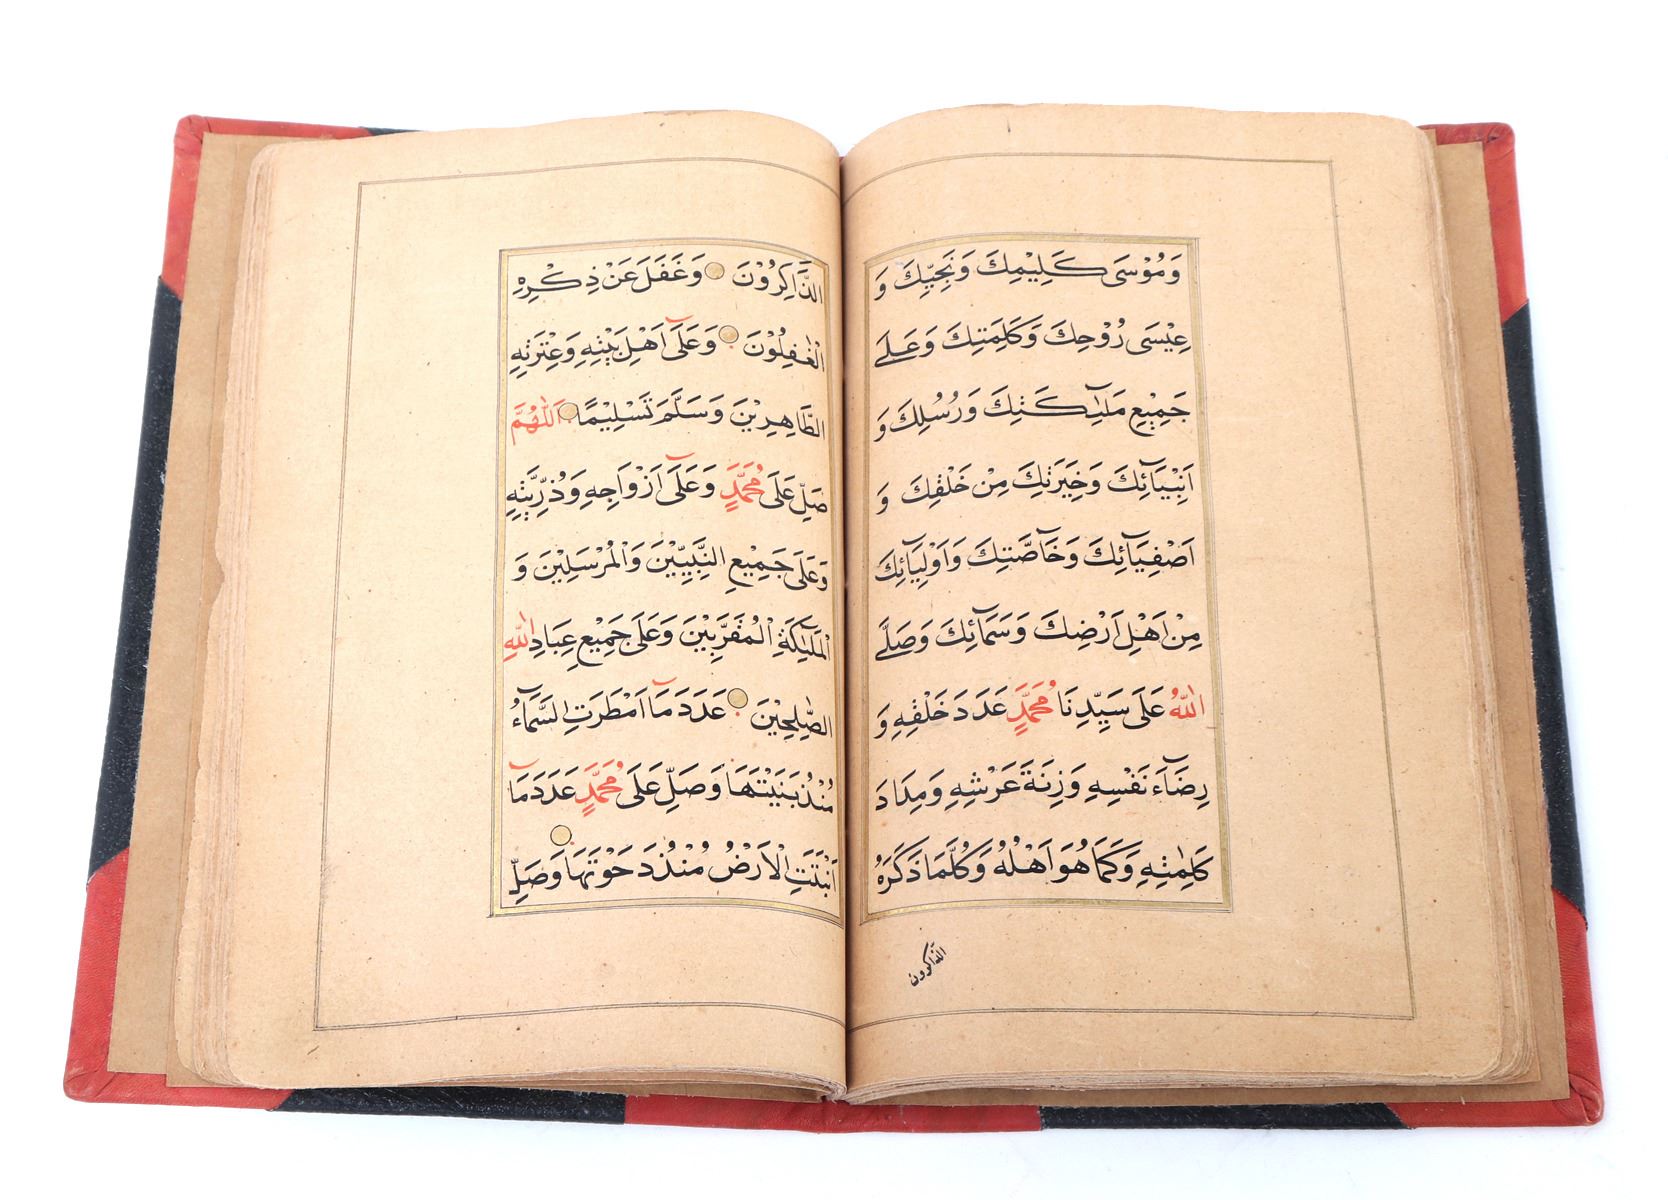 وَمُوْسَى كَلِيْمِكَ وَنَجِيِّكَ وَ
عِيْسَى رُوْحِكَ وَكَلِمَتِكَ وَعَلٰى
جَمِيْعِ مَلٰٓئِكَتِكَ وَرُسُلِكَ وَ
اَنْبِيَآئِكَ وَخِيَرَتِكَ مِنْ خَلْقِكَ وَ
اَصْفِيَآئِكَ وَخَآصَّتِكَ وَاَوْلِيَآئِكَ
مِنْ اَهْلِ اَرْضِكَ وَسَمَآئِكَ وَصَلَّى
اللّٰهُ عَلٰى سَيِّدِنَا مُحَمَّدٍ عَدَدَ خَلْقِهِ وَ
رِضَآءَ نَفْسِهِ وَزِنَةَ عَرْشِهِ وَمِدَادَ
كَلِمٰتِهِ وَكَمَا هُوَ اَهْلُهُ وَكُلَّمَا ذَكَرَهُ
الذَّاكرون
الذَّاكِرُوْنَ وَغَفَلَ عَنْ ذِكْرِهِ
الْغٰفِلُوْنَ وَعَلٰٓى اَهْلِ بَيْتِهِ وَعِتْرَتِهِ
الطَّاهِرِيْنَ وَسَلَّمَ تَسْلِيْمًا اَللّٰهُمَّ
صَلِّ عَلٰى مُحَمَّدٍ وَعَلٰٓى اَزْوَاجِهِ وَذُرِّيَّتِهِ
وَعَلٰى جَمِيْعِ النَّبِيِّيْنَ وَالْمُرْسَلِيْنَ وَ
الْمَلٰٓئِكَةِ الْمُقَرَّبِيْنَ وَعَلٰى جَمِيْعِ عِبَادِ اللّٰهِ
الصّٰلِحِيْنَ عَدَدَ مَآ اَمْطَرَتِ السَّمَآءُ
مُنْذُ بَنَيْتَهَا وَصَلِّ عَلٰى مُحَمَّدٍ عَدَدَ مَآ
اَنْبَتَتِ الْاَرْضُ مُنْذُ دَحَوْتَهَا وَصَلِّ